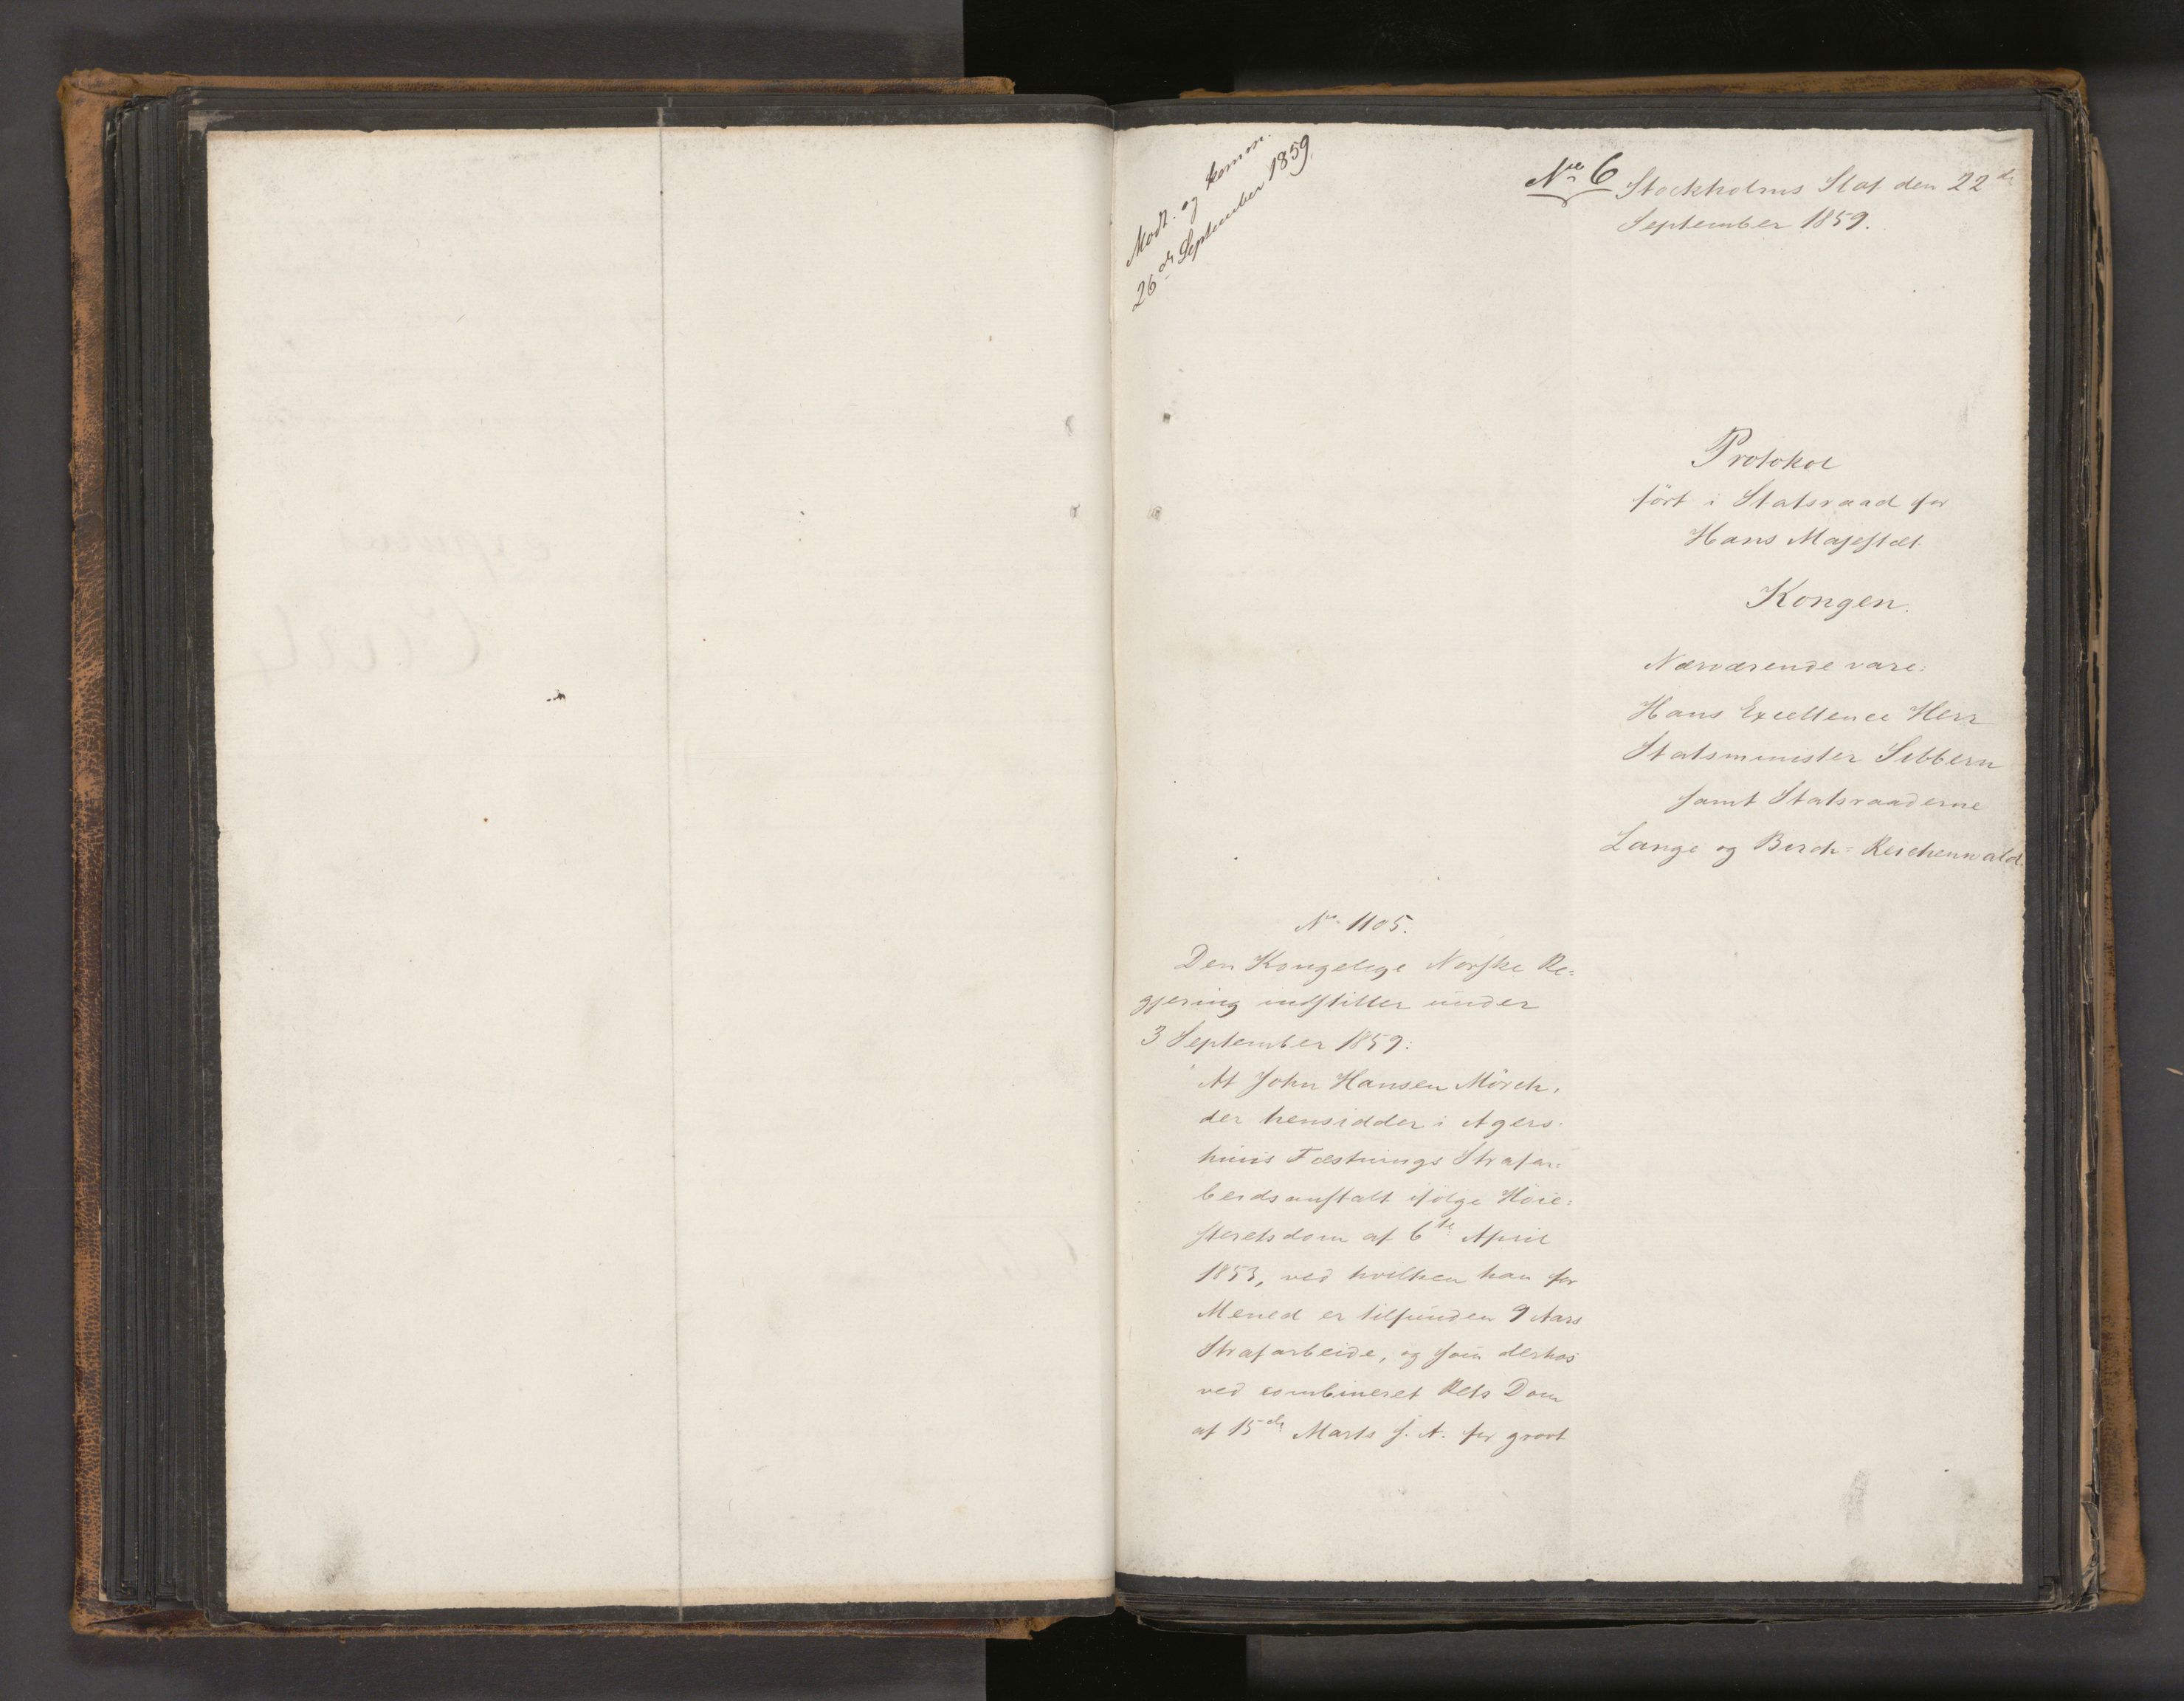 Modt. og komm.
26de September 1859.
No 6 Stockholms Slot den 22de
September 1859.
Protokol
ført i Statsraad for
Hans Majestæt
Kongen.
Nærværende vare:
Hans Excellence Herr
Statsminister Sibbern
samt Statsraaderne
Lange og Birch-Reichenwald.
No 1105.
Den Kongelige Norske Re=
gjering indstiller under
3 September 1859:
At John Hansen Mörch,
der hensidder i Agers-
huus Fæstnings Strafar=
beidsanstalt ifölge Höie=
steretsdom af 6te April
1853, ved hvilken han for
Mened er tilfunden 9 Aars
Strafarbeide, og som derhos
ved combineret Rets Dom
af 15de Marts f. A. for grovt